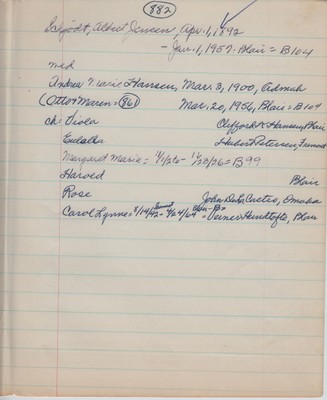 882
Schjodt, Albert Jensen, Apr. 1, 1892
- Jan. 1, 1957. Blair = B104
med
Andrea Marie Hansen, Mar. 3, 1900, Admah
(Otto & Maren = 861) Mar. 20, 1956, Blair = B104
ch: Viola Clifford K. Hansen, Blair
Eulalia Hubert Petersen, Fremont
Margaret Marie = 1/1/26 - 1/23/26 = B99
Harold Blair
Rose John Castro, Omaha
Carol Lynne = 8/14/42 - 4/24/64 = Verner Hundtofte, Blair